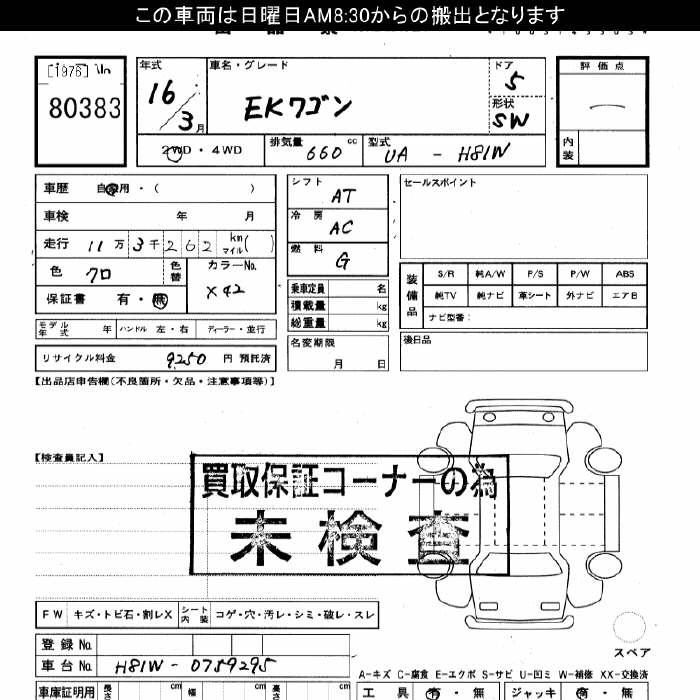 この車両は日曜日AM8:30からの搬出となります
[1976]
80383
年式
16
3月
車名・グレード
EKワゴン
ドア
5
形状
SW
評価点
内装
2WD・4WD
排気量 660 cc
型式 UA - H81W
車歴 自家用・( )
車検 年 月
走行 11万3千262 km マイル( )
色 クロ 色替
カラーNo.
X42
保証書 有・無
モデル年式 年 ハンドル 左・右 ディーラー・並行
リサイクル料金 9250 円 預託済
シフト AT
冷房 AC
燃料 G
乗車定員 名
積載量 kg
総重量 kg
名変期限
月 日
セールスポイント
装備品
S/R 純A/W P/S P/W ABS
純TV 純ナビ 革シート 外ナビ エアB
ナビ型番:
後日品
【出品店申告欄(不良箇所・欠品・注意事項等)】
【検査員記入】
買取保証コーナーの為
未検査
FW キズ・トビ石・割レX シート内装 コゲ・穴・汚レ・シミ・破レ・スレ
スペア
登録No.
車台No. H81W - 0759295
A-キズ C-腐食 E-エクボ S-サビ U-凹ミ W-補修 XX-交換済
車庫証明用 長さ cm 幅 cm 高さ cm
工具 有・無 ジャッキ 有・無